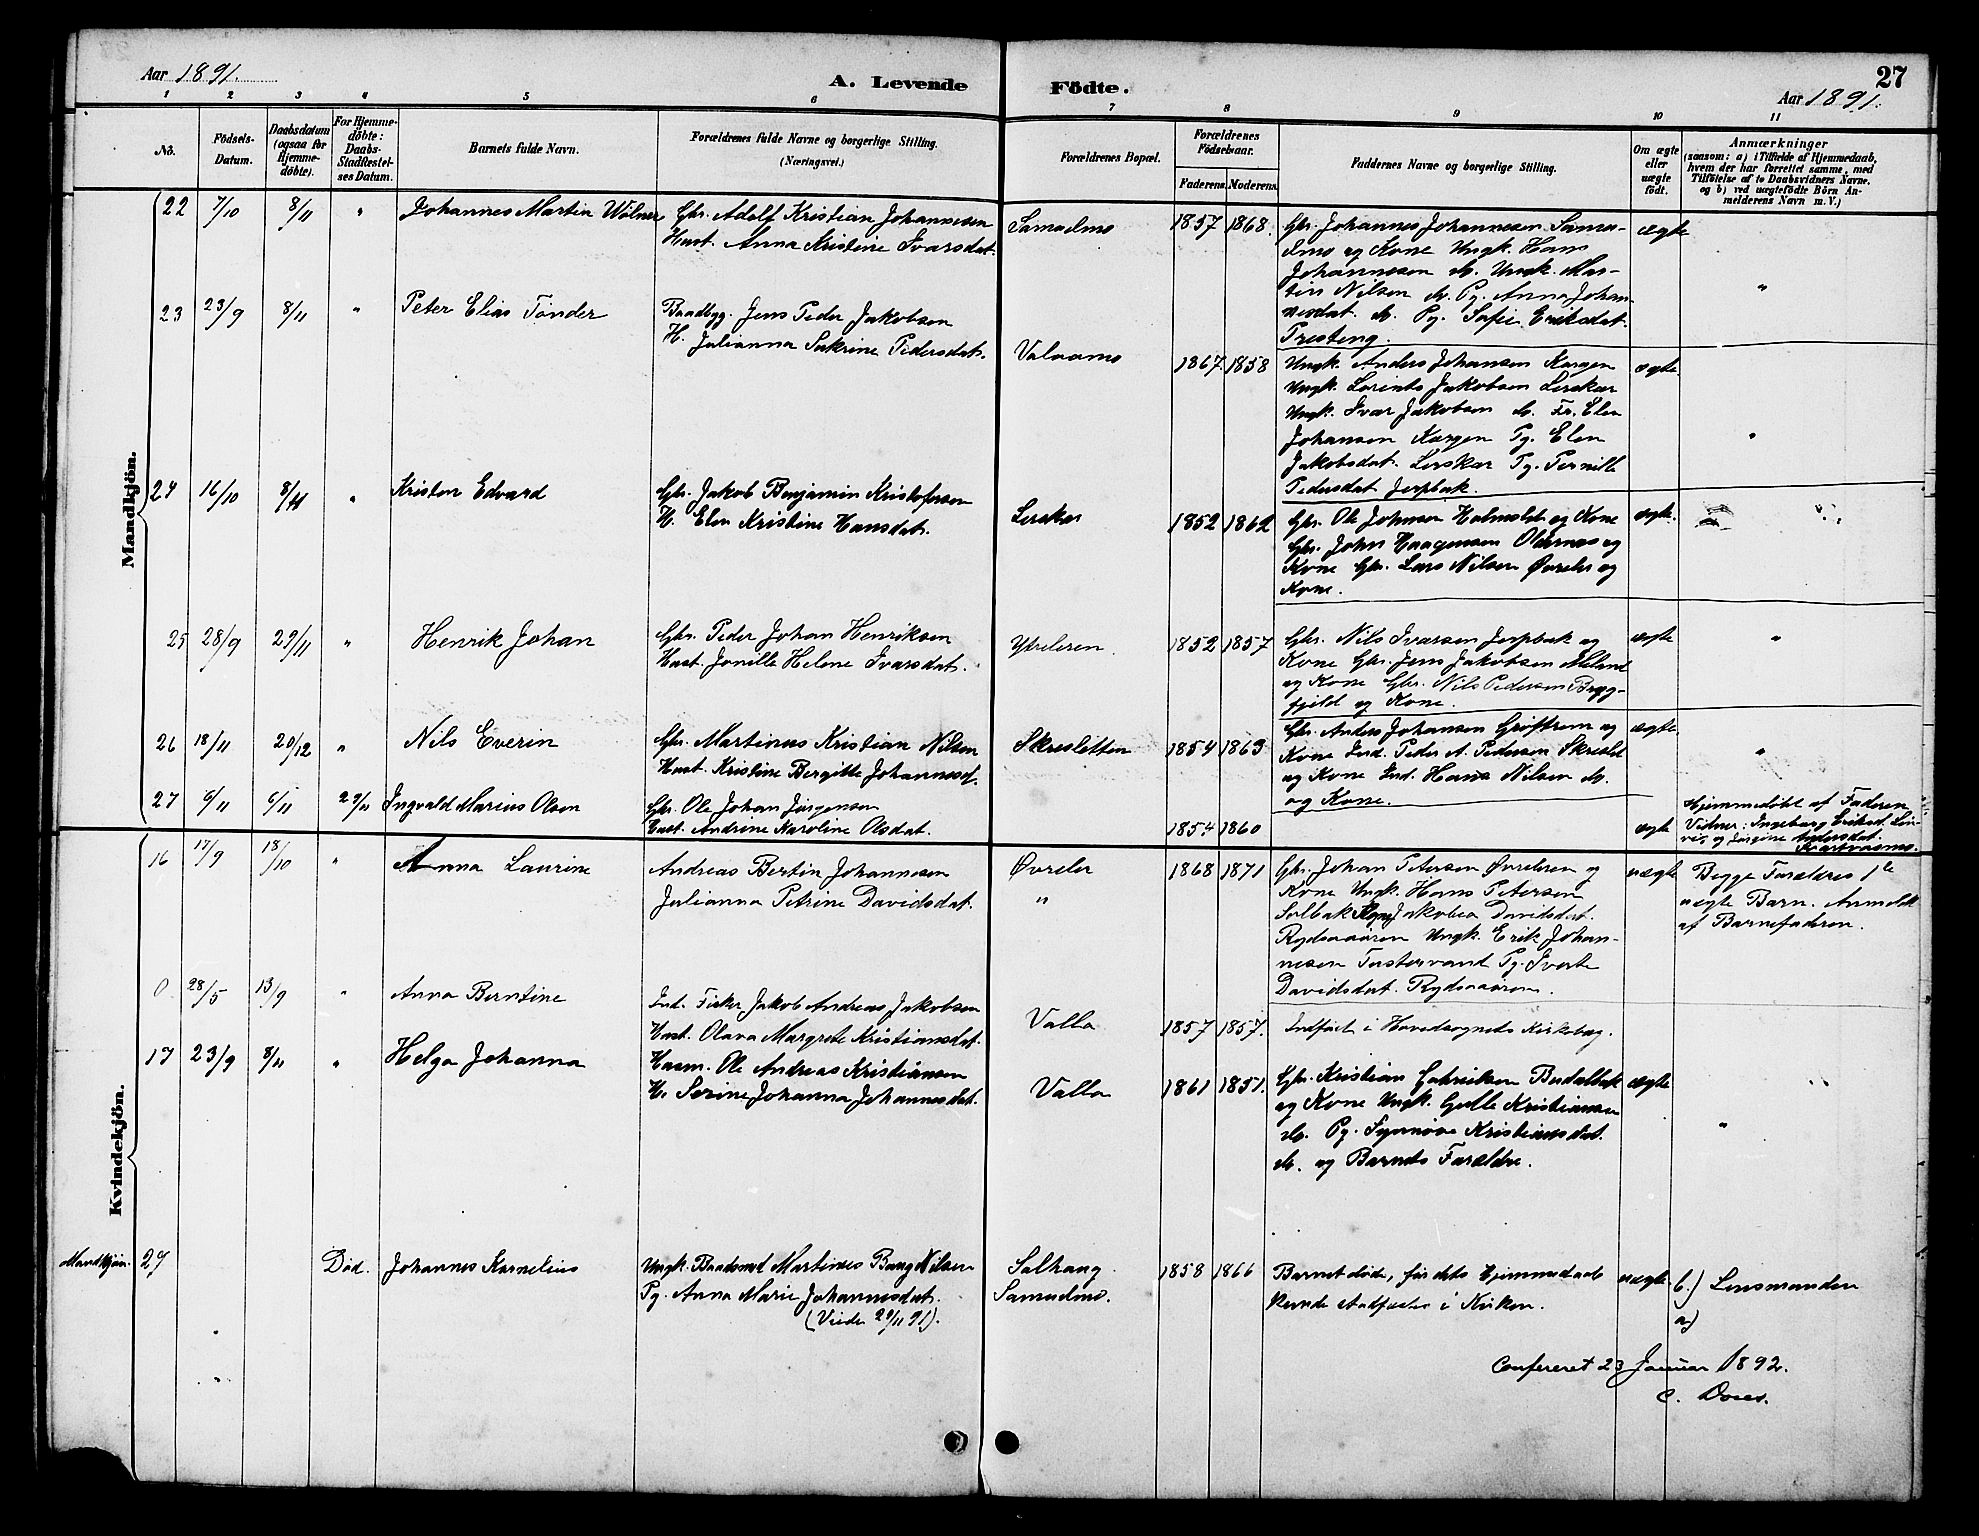 Aar 1891.
A. Levende Födte.
27
Aar 1891.
1 2 3 4 5 6 7 8 9 10 11
No.
Födsels-Datum.
Daabsdatum (ogsaa for Hjemme-döbte).
For Hjemme-döbte: Daabs-Stadfæstel-ses Datum.
Barnets fulde Navn.
Forældrenes fulde Navne og borgerlige Stilling. (Næringsvei.)
Forældrenes Bopæl.
Forældrenes Födselsaar.
Faderens. Moderens.
Faddernes Navne og borgerlige Stilling.
Om ægte eller uægte födt.
Anmærkninger
(saasom: a) i Tilfælde af Hjemmedaab, hvem der har forrettet samme, med Tilföielse af to Daabsvidners Navne, og b) ved uægtefödte Börn An-melderens Navn m. V.)
Mandkjön.
22 7/10 8/11 " Johannes Martin Wölner
Gbr. Adolf Kristian Johannesen
Hust. Anna Kristine Ivarsdat.
Samuelmo 1857 1868.
Gbr. Johannes Johannesen Samu-
elmo og Kone Ungk. Hans
Johannesen do. Ungk. Mar-
tin Nilsen do. Pg. Anna Johan-
nesdat. do. Pg. Sofie Eriksdat.
Presteng.
ægte "
23 23/9 8/11 " Peter Elias Tönder
Baadbyg. Jens Peder Jakobsen
H. Julianna Sakrine Pedersdat.
Valaamo 1867 1858
Ungk. Anders Johansen Korgen
Ungk. Lorints Jakobsen Lerskar
Ungk. Ivar Jakobsen do. Fr. Elen
Johansen Korgen Pg. Elen
Jakobsdat. Lerskar Pg. Pernille
Pedersdat Jerpbak.
ægte "
24 16/10 8/11 " Kristen Edvard
Gbr. Jakob Benjamin Kristofersen
H. Elen Kristine Hansdat.
Lerskar 1852 1862
Gbr. Ole Johnsen Holmslet og Kone
Gbr. John Haagensen Oldernes og
Kone Gbr. Lars Nilsen Øvreler og
Kone.
ægte.
25 28/9 29/11 " Henrik Johan
Gbr. Peder Johan Henriksen
Hust. Jonille Helene Ivarsdat.
Ytreleren. 1852 1857
Gbr. Nils Ivarsen Jerpbak og
Kone Gbr. Jens Jakobsen
og Kone Gbr. Nils Pedersen Bryg-
fjeld og Kone.
ægte "
26 18/11 20/12 " Nils Everin
Gbr. Martinus Kristian Nilsen
Hust. Kristine Bergitte Johannesd.
Skresletten 1854 1863
Gbr. Anders Johansen Gröftrem og
Kone Ind. Peder A. Pedersen Skreslet
og Kone Ind. Hans Nilsen do.
og Kone.
ægte. "
27 6/11 6/11 29/11 Ingvald Marius Olsen
Gbr. Ole Johan Jörgensen
Hust. Andrine Karoline Olsdat.
1854 1860
ægte
Hjemmedöbt af Faderen
Vidner: Ingeborg Eriksd.
og Jörgine Andersdat.
Kvindekjön.
16 17/9 18/10 " Anna Laurine
Andreas Bertin Johannesen
Julianna Petrine Davidsdat.
Øvreler
"
1868 1871
Gbr. Johan Petersen Øvreleren og
Kone Ungk. Hans Petersen
Solbak Jakobea Davidsdat.
Rydsaaaren Ungk. Erik Johan-
nesen Tustervand Pg. Iverta
Davidsdat. Rydsaaaren.
uægte
Begge Forældres 1ste
uægte Barn. Anmeldt
af Barnefaderen.
0 28/5 13/9 " Anna Berntine
Ind. Fisker Jakob Andreas Jakobsen
Hust. Olava Margrete Kristiansdat.
Valla 1857 1857.
Indfört i Hovedsognets Kirkebog.
17 23/9 8/11 " Helga Johanna
Husm. Ole Andreas Kristiansen
H. Serine Johanna Johannesdat.
Valla 1861 1851.
Gbr. Kristian Gabrielsen
og Kone Ungk. Gulle Kristiansen
do. Pg. Synnöve Kristiansdat.
do. og Barnets Forældre.
ægte "
Mandkjön. 27 Död. Johannes Kornelius
Ungk. Baadsmd. Martines Nilsen
Pg. Anna Marie Johannesdat.
(Viede 29/11 91).
Solhaug
Samuelmo.
1858 1866
Barnet döde, för dets Hjemmedaab
kunde stadfæstes i Kirken.
uægte
b.) Lensmanden
a)
Confereret 23 Januar 1892.